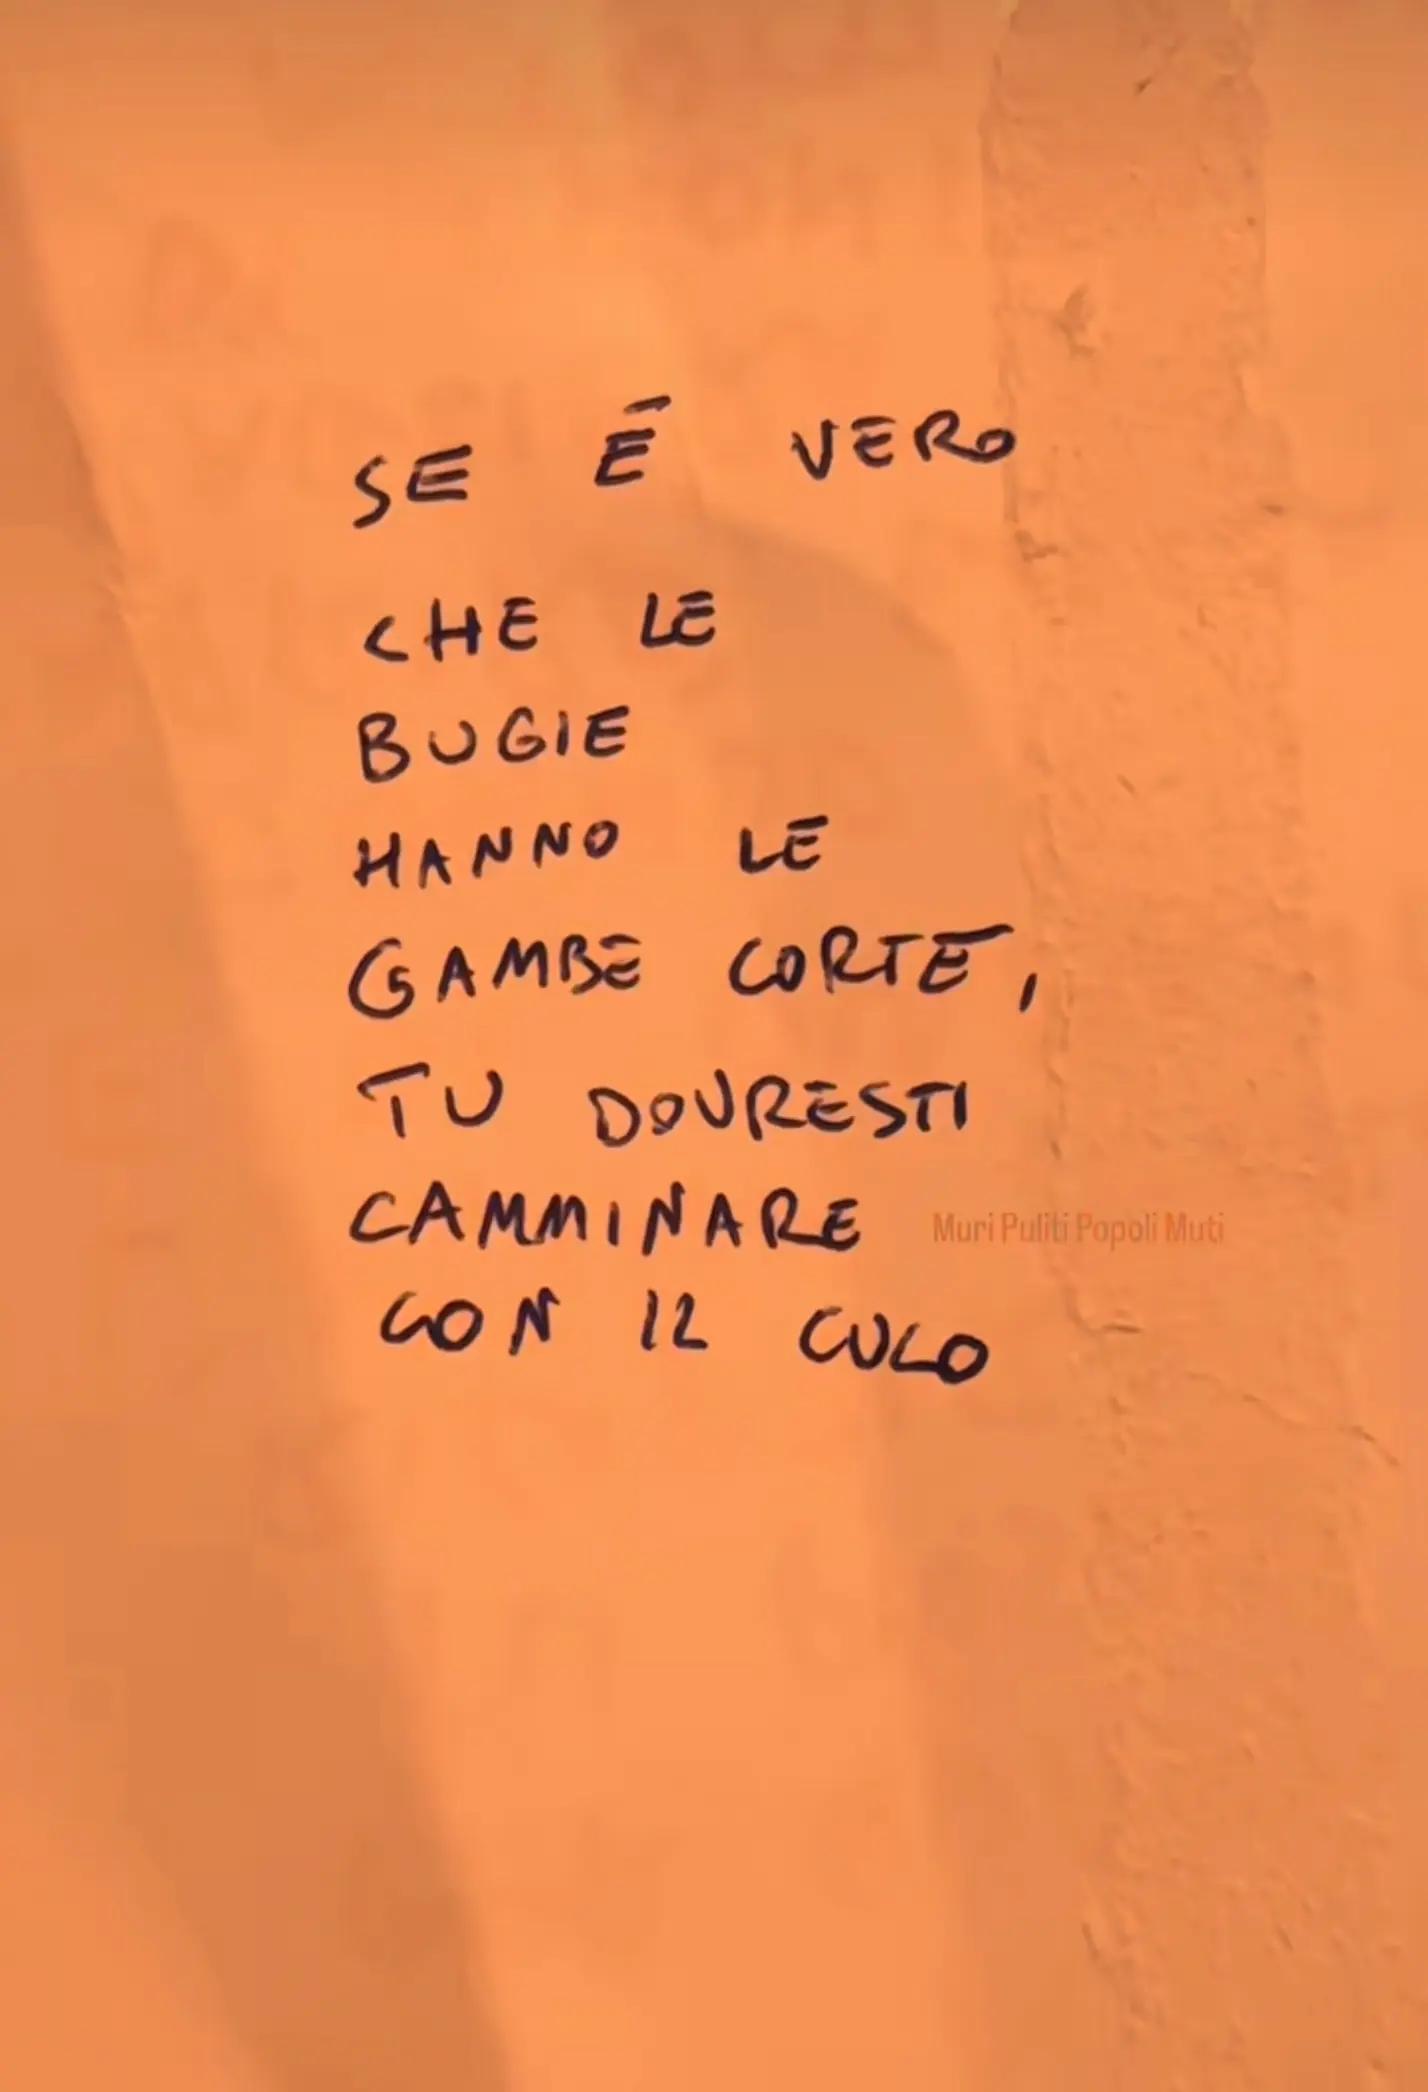 SE È VERO
CHE LE
BUGIE
HANNO LE
GAMBE CORTE,
TU DOVRESTI
CAMMINARE
CON IL CULO
Muri Puliti Popoli Muti